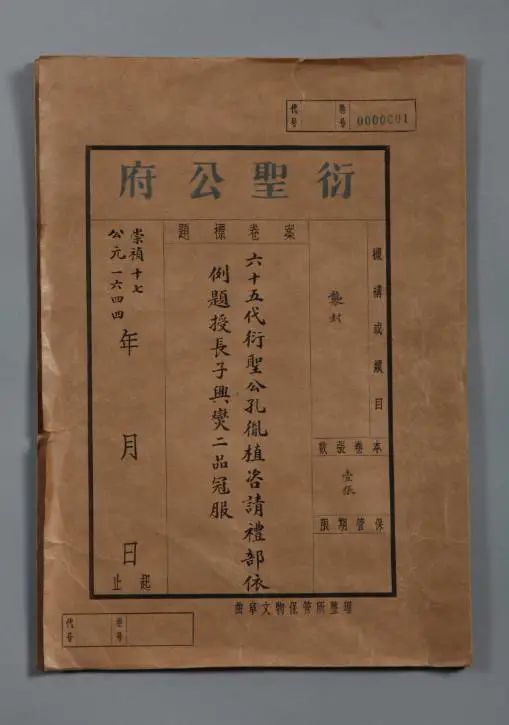 代號 卷號 0000001
衍聖公府
機構或類目
襲封
本卷張數
壹張
保管期限
案卷標題
六十五代衍聖公孔胤植咨請禮部依
例題授長子興燮二品冠服
崇禎十七
公元一六四四
年 月 日
起止
曲阜文物保管所整理
代號 卷號